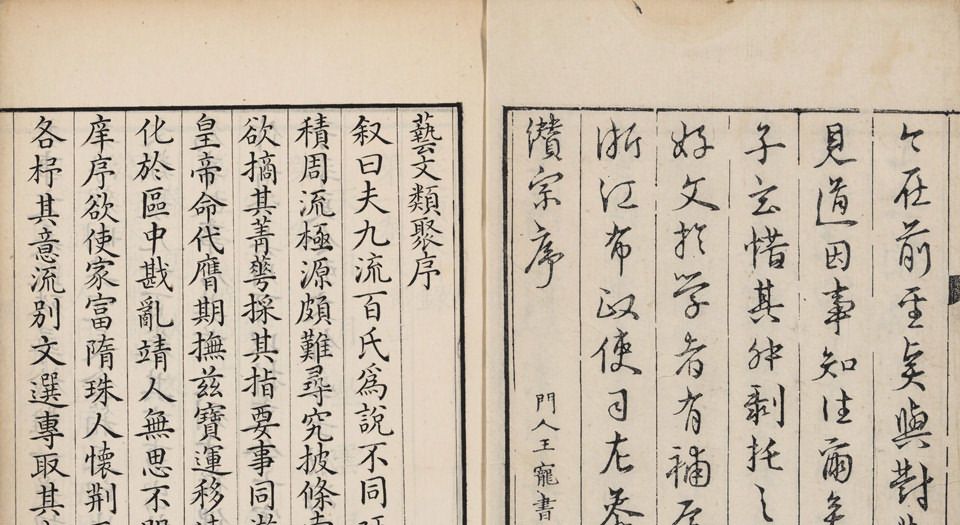 在前至與對
見道因事知往爾
子玄惜其托之
好文於學者有補
浙江布政使司左參
纘宗序　門人王寵書
藝文類聚序
叙曰夫九流百氏爲說不同
積周流極源頗難尋究披條
欲摘其菁華採其指要事同
皇帝命代膺期撫茲寶運移
化於區中戡亂靖人無思不
庠序欲使家富隋珠人懷荆
各杼其意流別文選專取其